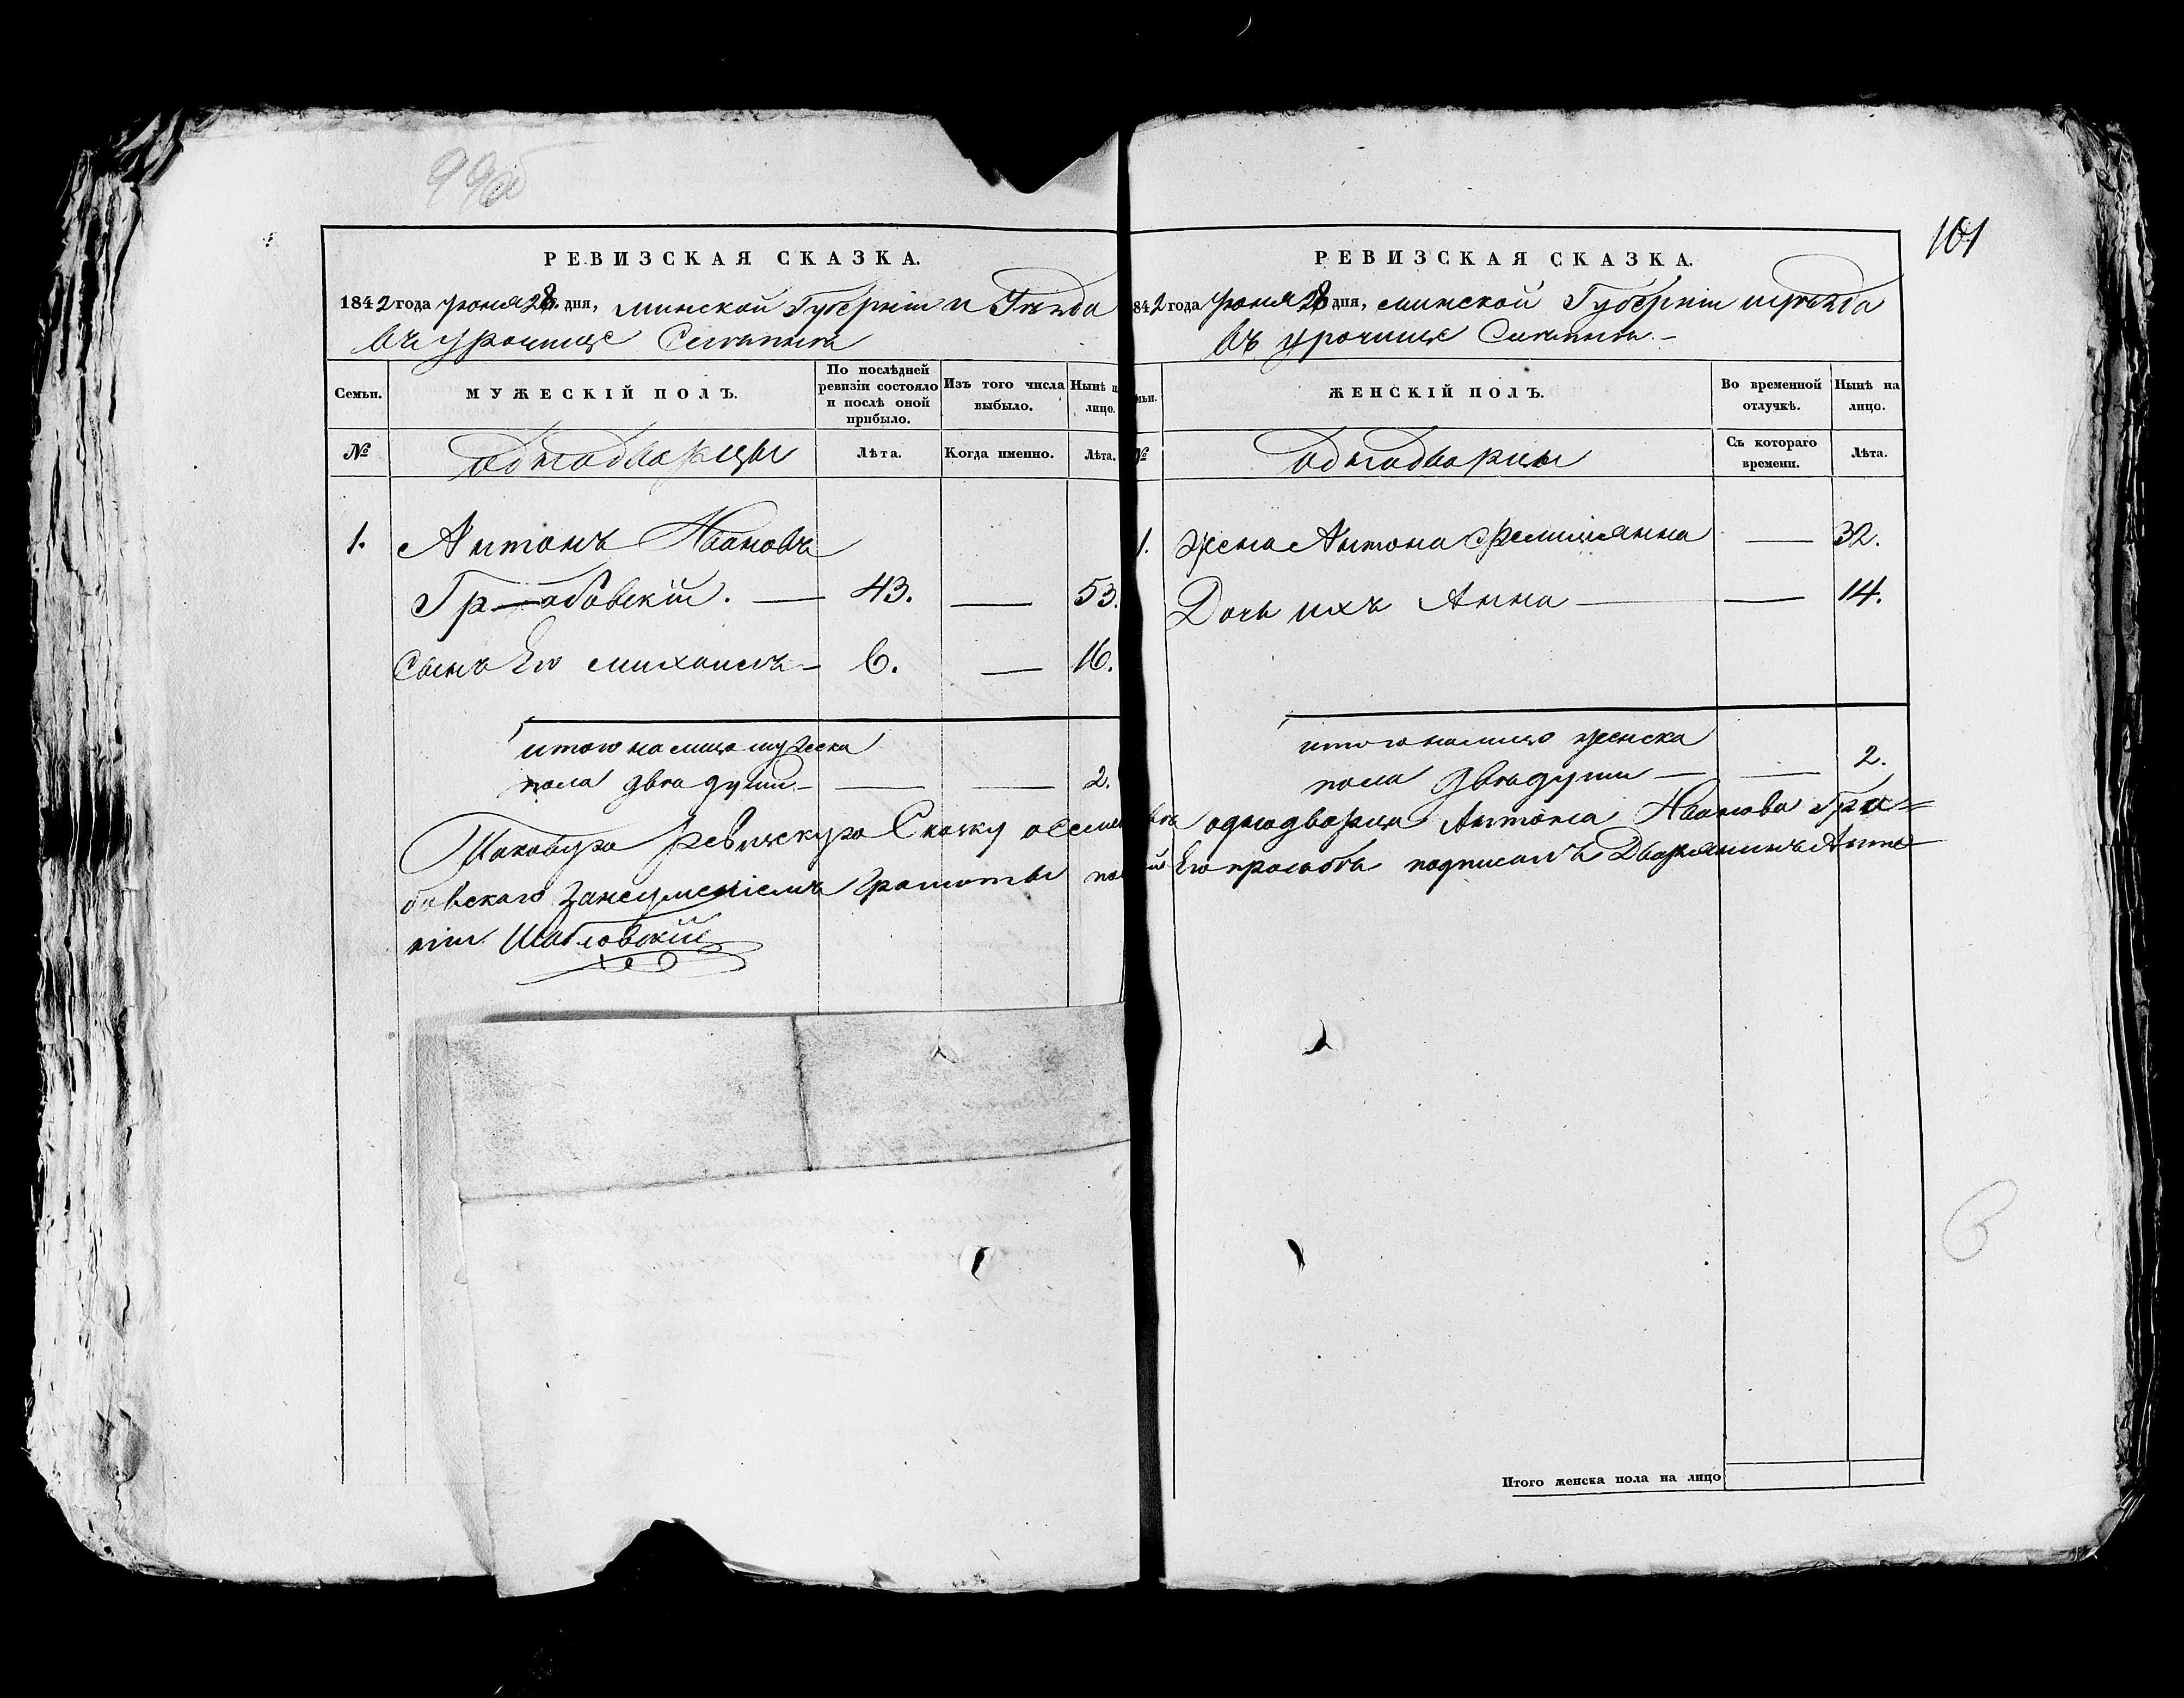 99об
РЕВИЗСКАЯ СКАЗКА.
1842 года Іюня 28. дня, Минской Губерніи и Уѣзда
въ урочище
Семьи.
МУЖЕСКІЙ ПОЛЪ.
По послѣдней ревизіи состояло и послѣ оной прибыло.
Изъ того числа выбыло.
Нынѣ на лицо.
№
однодворцы
Лѣта.
Когда именно.
Лѣта.
1. Антонъ Ивановъ
Гр—абовскій. — 43. — 53.
Сынъ Его Михаилъ — 6. — 16.
итого налицо мужеска
пола двѣ души — — — 2.
101
РЕВИЗСКАЯ СКАЗКА.
842 года Іюня 28 дня, Минской Губерніи и уѣзда
въ урочище
мьи.
ЖЕНСКІЙ ПОЛЪ.
Во временной отлучкѣ.
Нынѣ на лицо.
№
однодворцы
Съ котораго времени.
Лѣта.
1. жена Антона Фелиціянна — 32.
Дочь ихъ Анна — — 14.
итого налицо женска
пола двѣ души — — 2.
Таковую ревизскую Сказку о семействѣ однодворца Антона Иванова Гра=
бовскаго занеумѣніемъ Грамоты по Его прозьбѣ подписалъ Дворянинъ Анто
ній Шабловскій
Итого женска пола на лицо